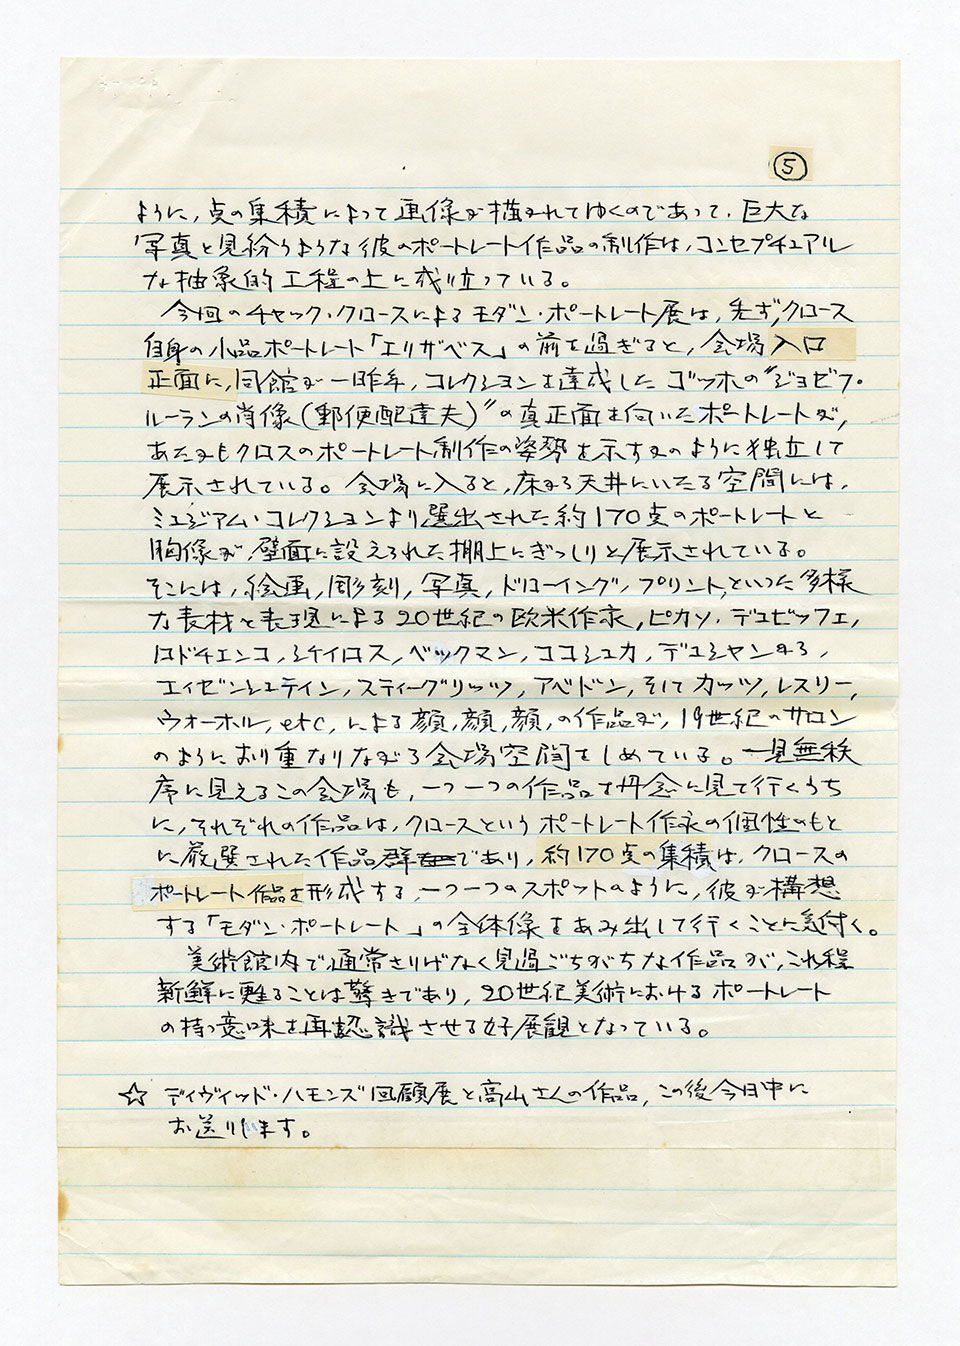 ⑤
ように，点の集積によって画像が描かれてゆくのであって，巨大な
写真と見紛うような彼のポートレート作品の制作は，コンセプチュアル
な抽象的工程の上に成り立っている。
今回のチャック・クロースによるモダン・ポートレート展は，先ず，クロース
自身の小品ポートレート「エリザベス」の前を過ぎると，会場入口
正面に，同館が一昨年，コレクションを達成したゴッホの〝ジョゼフ・
ルーランの肖像（郵便配達夫）〟の真正面を向いたポートレートが，
あたかもクロスのポートレート制作の姿勢を示すかのように独立して
展示されている。会場に入ると，床から天井にいたる空間には，
ミュジアム・コレクションより選出された約170点のポートレートと
胸像が，壁面に設えられた棚上にぎっしりと展示されている。
そこには，絵画，彫刻，写真，ドローイング，プリント，といった多様
な素材と表現による20世紀の欧米作家，ピカソ，デュビッフェ，
ロドチェンコ，シケイロス，ベックマン，ココシュカ，デュシャンから，
エイゼンシュテイン，スティーグリッツ，アベドン，そして カッツ，レスリー，
ウォーホル，etc，による顔，顔，顔，の作品が，19世紀のサロン
のようにおり重なりながら会場空間をしめている。一見無秩
序に見えるこの会場も，一つ一つの作品を丹念に見て行くうち
に，それぞれの作品は，クロースというポートレート作家の個性のもと
に厳選された作品群であり，約170点の集積は，クロースの
ポートレート作品を形成する，一つ一つのスポットのように，彼が構想
する「モダン・ポートレート」の全体像をあみ出して行くことに気付く。
美術館内で通常さりげなく見過ごちがちな作品が，これ程
新鮮に甦ることは驚きであり，20世紀美術におけるポートレート
の持つ意味を再認識させる好展観となっている。
☆ ディヴィッド・ハモンズ回顧展と高山さんの作品，この後今日中に
お送りします。